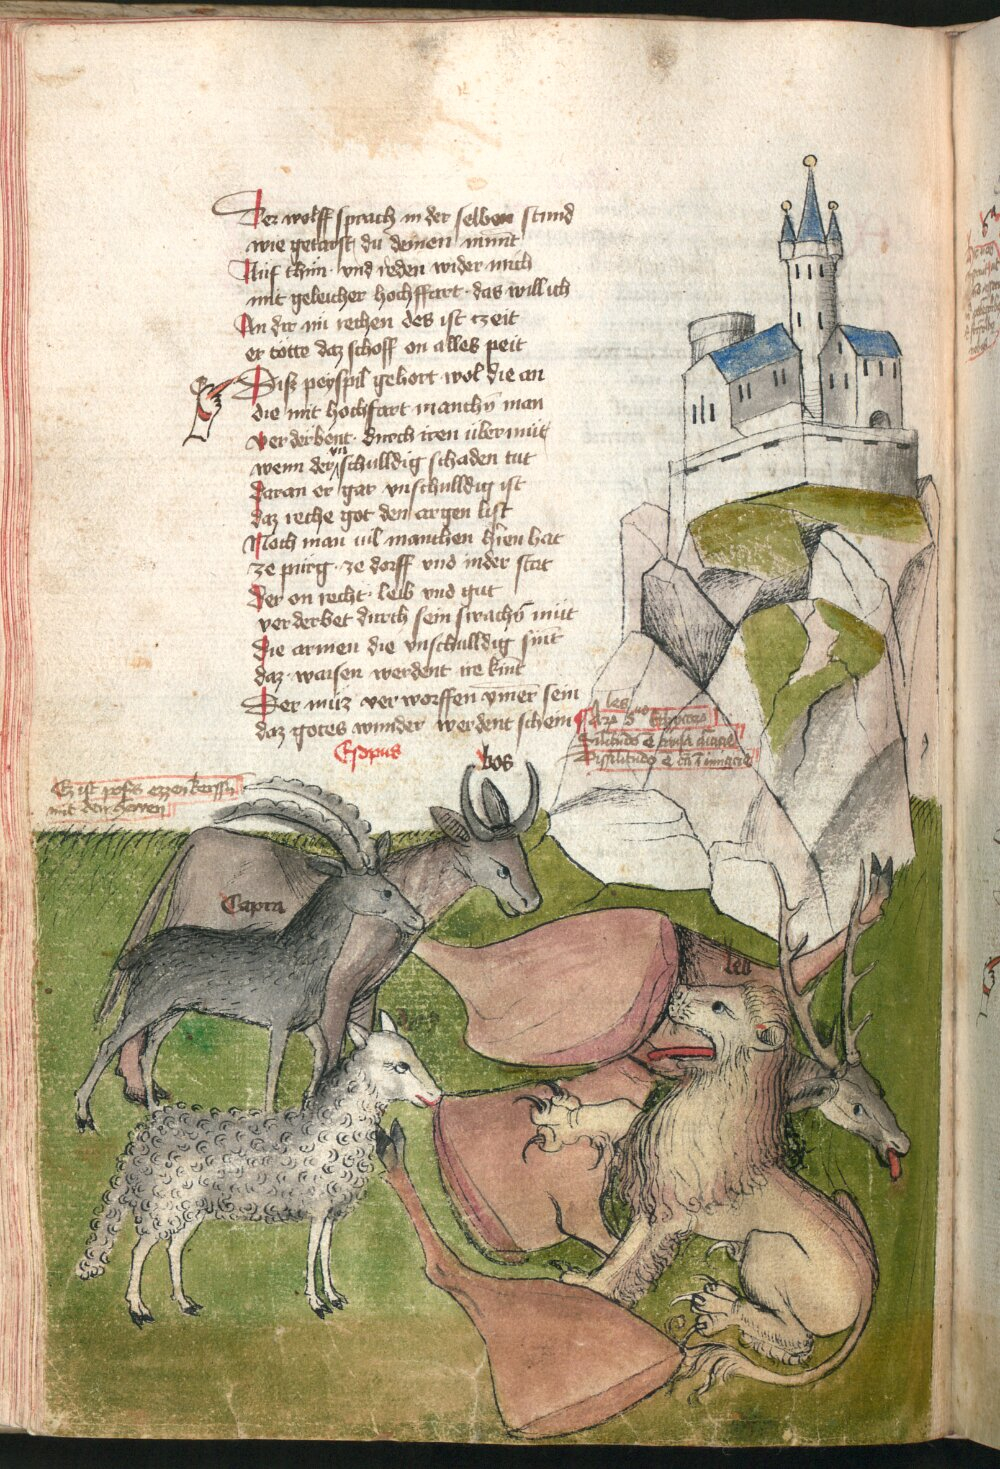 Der wolff sprach in der selben stund
wie getarst du deinen munt
Auf thun · vnd reden wider mich
mit geleicher hochffart · das will ich
An dir nu rechen des ist czeit
er totte daz schoff on alles peit
Disz peyspil gehort wol die an
die mit hochfart manchen man
verderbent · durch iren übermut
wenn der vnschulldig schaden tut
daran er gar vnschulldig ist
daz reche got den argen list
Noch man vil manchen herren hat
ze pürg · ze dorff vnd in der stat
Der on recht · leib vnd gut
verderbet durch sein swachen mut
Die armen die vnschulldig sint
daz · waisen werdent ire kint
Der muz verworffen ymer sein
daz gotes wunder werdent schein
Esopus
bos
Ez ist pös ezzen kerssn
mit den herren
Capra
leo